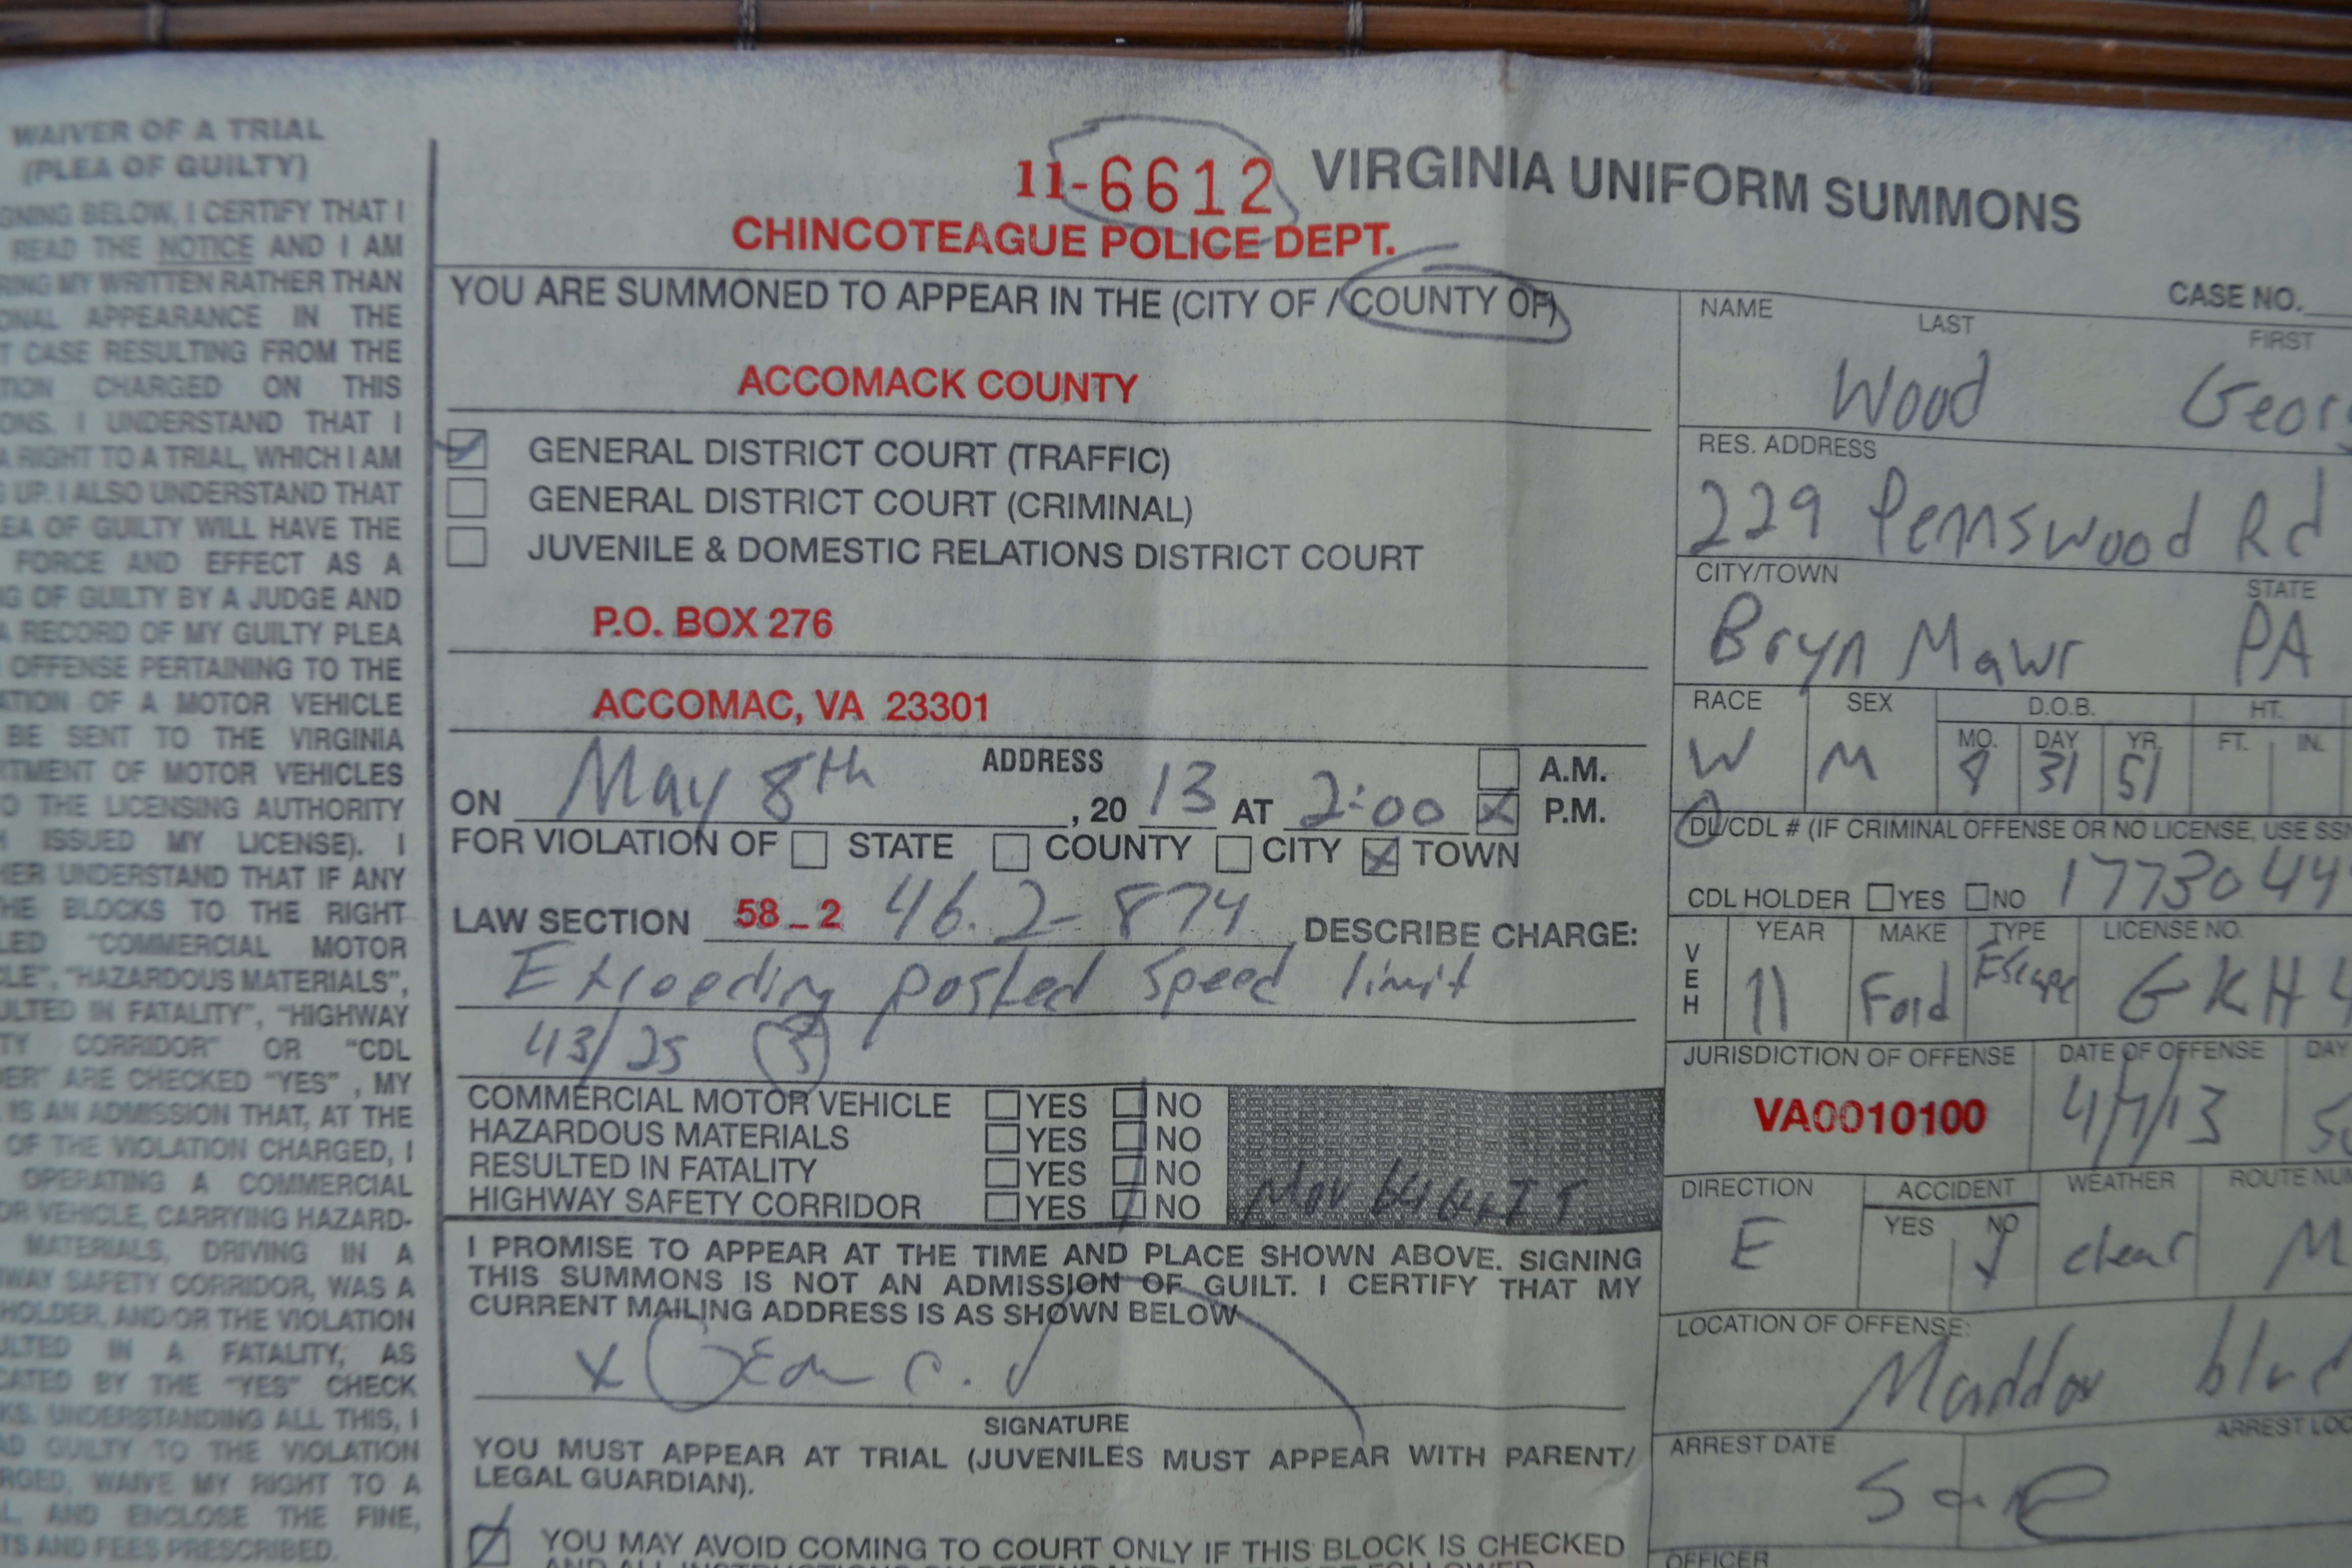 WAIVER OF A TRIAL
(PLEA OF GUILTY)
GNING BELOW, I CERTIFY THAT I
READ THE NOTICE AND I AM
RING MY WRITTEN RATHER THAN
ONAL APPEARANCE IN THE
T CASE RESULTING FROM THE
TION CHARGED ON THIS
ONS. I UNDERSTAND THAT I
A RIGHT TO A TRIAL, WHICH I AM
G UP. I ALSO UNDERSTAND THAT
LEA OF GUILTY WILL HAVE THE
FORCE AND EFFECT AS A
NG OF GUILTY BY A JUDGE AND
A RECORD OF MY GUILTY PLEA
OFFENSE PERTAINING TO THE
ATION OF A MOTOR VEHICLE
BE SENT TO THE VIRGINIA
RTMENT OF MOTOR VEHICLES
O THE LICENSING AUTHORITY
H ISSUED MY LICENSE). I
HER UNDERSTAND THAT IF ANY
HE BLOCKS TO THE RIGHT
LED "COMMERCIAL MOTOR
CLE", "HAZARDOUS MATERIALS",
ULTED IN FATALITY", "HIGHWAY
TY CORRIDOR" OR "CDL
DER" ARE CHECKED "YES", MY
IS AN ADMISSION THAT, AT THE
OF THE VIOLATION CHARGED, I
OPERATING A COMMERCIAL
OR VEHICLE, CARRYING HAZARD-
MATERIALS, DRIVING IN A
WAY SAFETY CORRIDOR, WAS A
HOLDER, AND/OR THE VIOLATION
ULTED IN A FATALITY, AS
CATED BY THE "YES" CHECK
KS. UNDERSTANDING ALL THIS, I
AD GUILTY TO THE VIOLATION
RGED, WAIVE MY RIGHT TO A
AL, AND ENCLOSE THE FINE,
TS AND FEES PRESCRIBED.
11-6612 VIRGINIA UNIFORM SUMMONS
CHINCOTEAGUE POLICE DEPT.
YOU ARE SUMMONED TO APPEAR IN THE (CITY OF / COUNTY OF)
ACCOMACK COUNTY
GENERAL DISTRICT COURT (TRAFFIC)
GENERAL DISTRICT COURT (CRIMINAL)
JUVENILE & DOMESTIC RELATIONS DISTRICT COURT
P.O. BOX 276
ACCOMAC, VA 23301
ADDRESS
A.M.
ON May 8th, 20 13 AT 2:00 P.M.
FOR VIOLATION OF STATE COUNTY CITY TOWN
LAW SECTION 58-2 46.2-874 DESCRIBE CHARGE:
Exceeding posted speed limit
43/25
COMMERCIAL MOTOR VEHICLE YES NO
HAZARDOUS MATERIALS YES NO
RESULTED IN FATALITY YES NO
HIGHWAY SAFETY CORRIDOR YES NO
I PROMISE TO APPEAR AT THE TIME AND PLACE SHOWN ABOVE. SIGNING
THIS SUMMONS IS NOT AN ADMISSION OF GUILT. I CERTIFY THAT MY
CURRENT MAILING ADDRESS IS AS SHOWN BELOW
x
SIGNATURE
YOU MUST APPEAR AT TRIAL (JUVENILES MUST APPEAR WITH PARENT/
LEGAL GUARDIAN).
YOU MAY AVOID COMING TO COURT ONLY IF THIS BLOCK IS CHECKED
CASE NO.
NAME LAST FIRST
Wood Geor
RES. ADDRESS
229 Pennswood Rd
CITY/TOWN STATE
Bryn Mawr PA
RACE SEX D.O.B. HT.
MO. DAY YR. FT. IN.
W M 8 31 51
DL/CDL # (IF CRIMINAL OFFENSE OR NO LICENSE, USE SSN
CDL HOLDER YES NO 1773044
VEH YEAR MAKE TYPE LICENSE NO.
11 Ford Escape GKH4
JURISDICTION OF OFFENSE DATE OF OFFENSE DAY
VA0010100 4/7/13 Su
DIRECTION ACCIDENT WEATHER ROUTE NU
YES NO
E clear M
LOCATION OF OFFENSE:
Maddox blvd
ARREST DATE ARREST LOC
Same
OFFICER